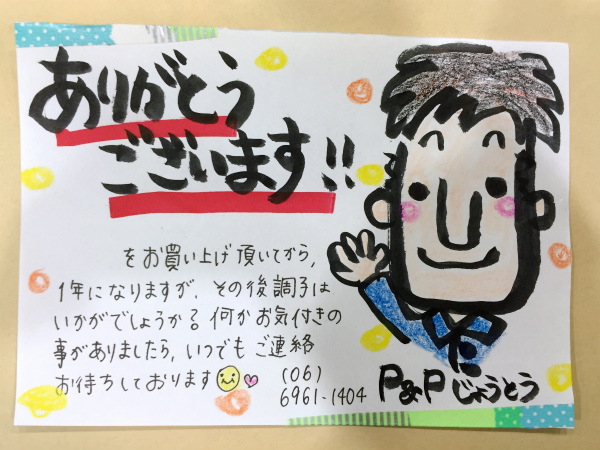 ありがとう
ございます!!
をお買い上げ頂いてから,
1年になりますが、その後調子は
いかがでしょうか？何かお気付きの
事がありましたら,いつでもご連絡
お待ちしております
(06)
6961-1404
P&Pじょうとう